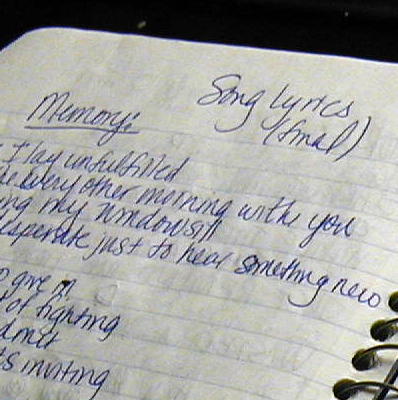 Song Lyrics
(final)
Memory:
I lay unfulfilled
every other morning with you
my windowsill
desperate just to hear something new
give in
of fighting
admit
inviting